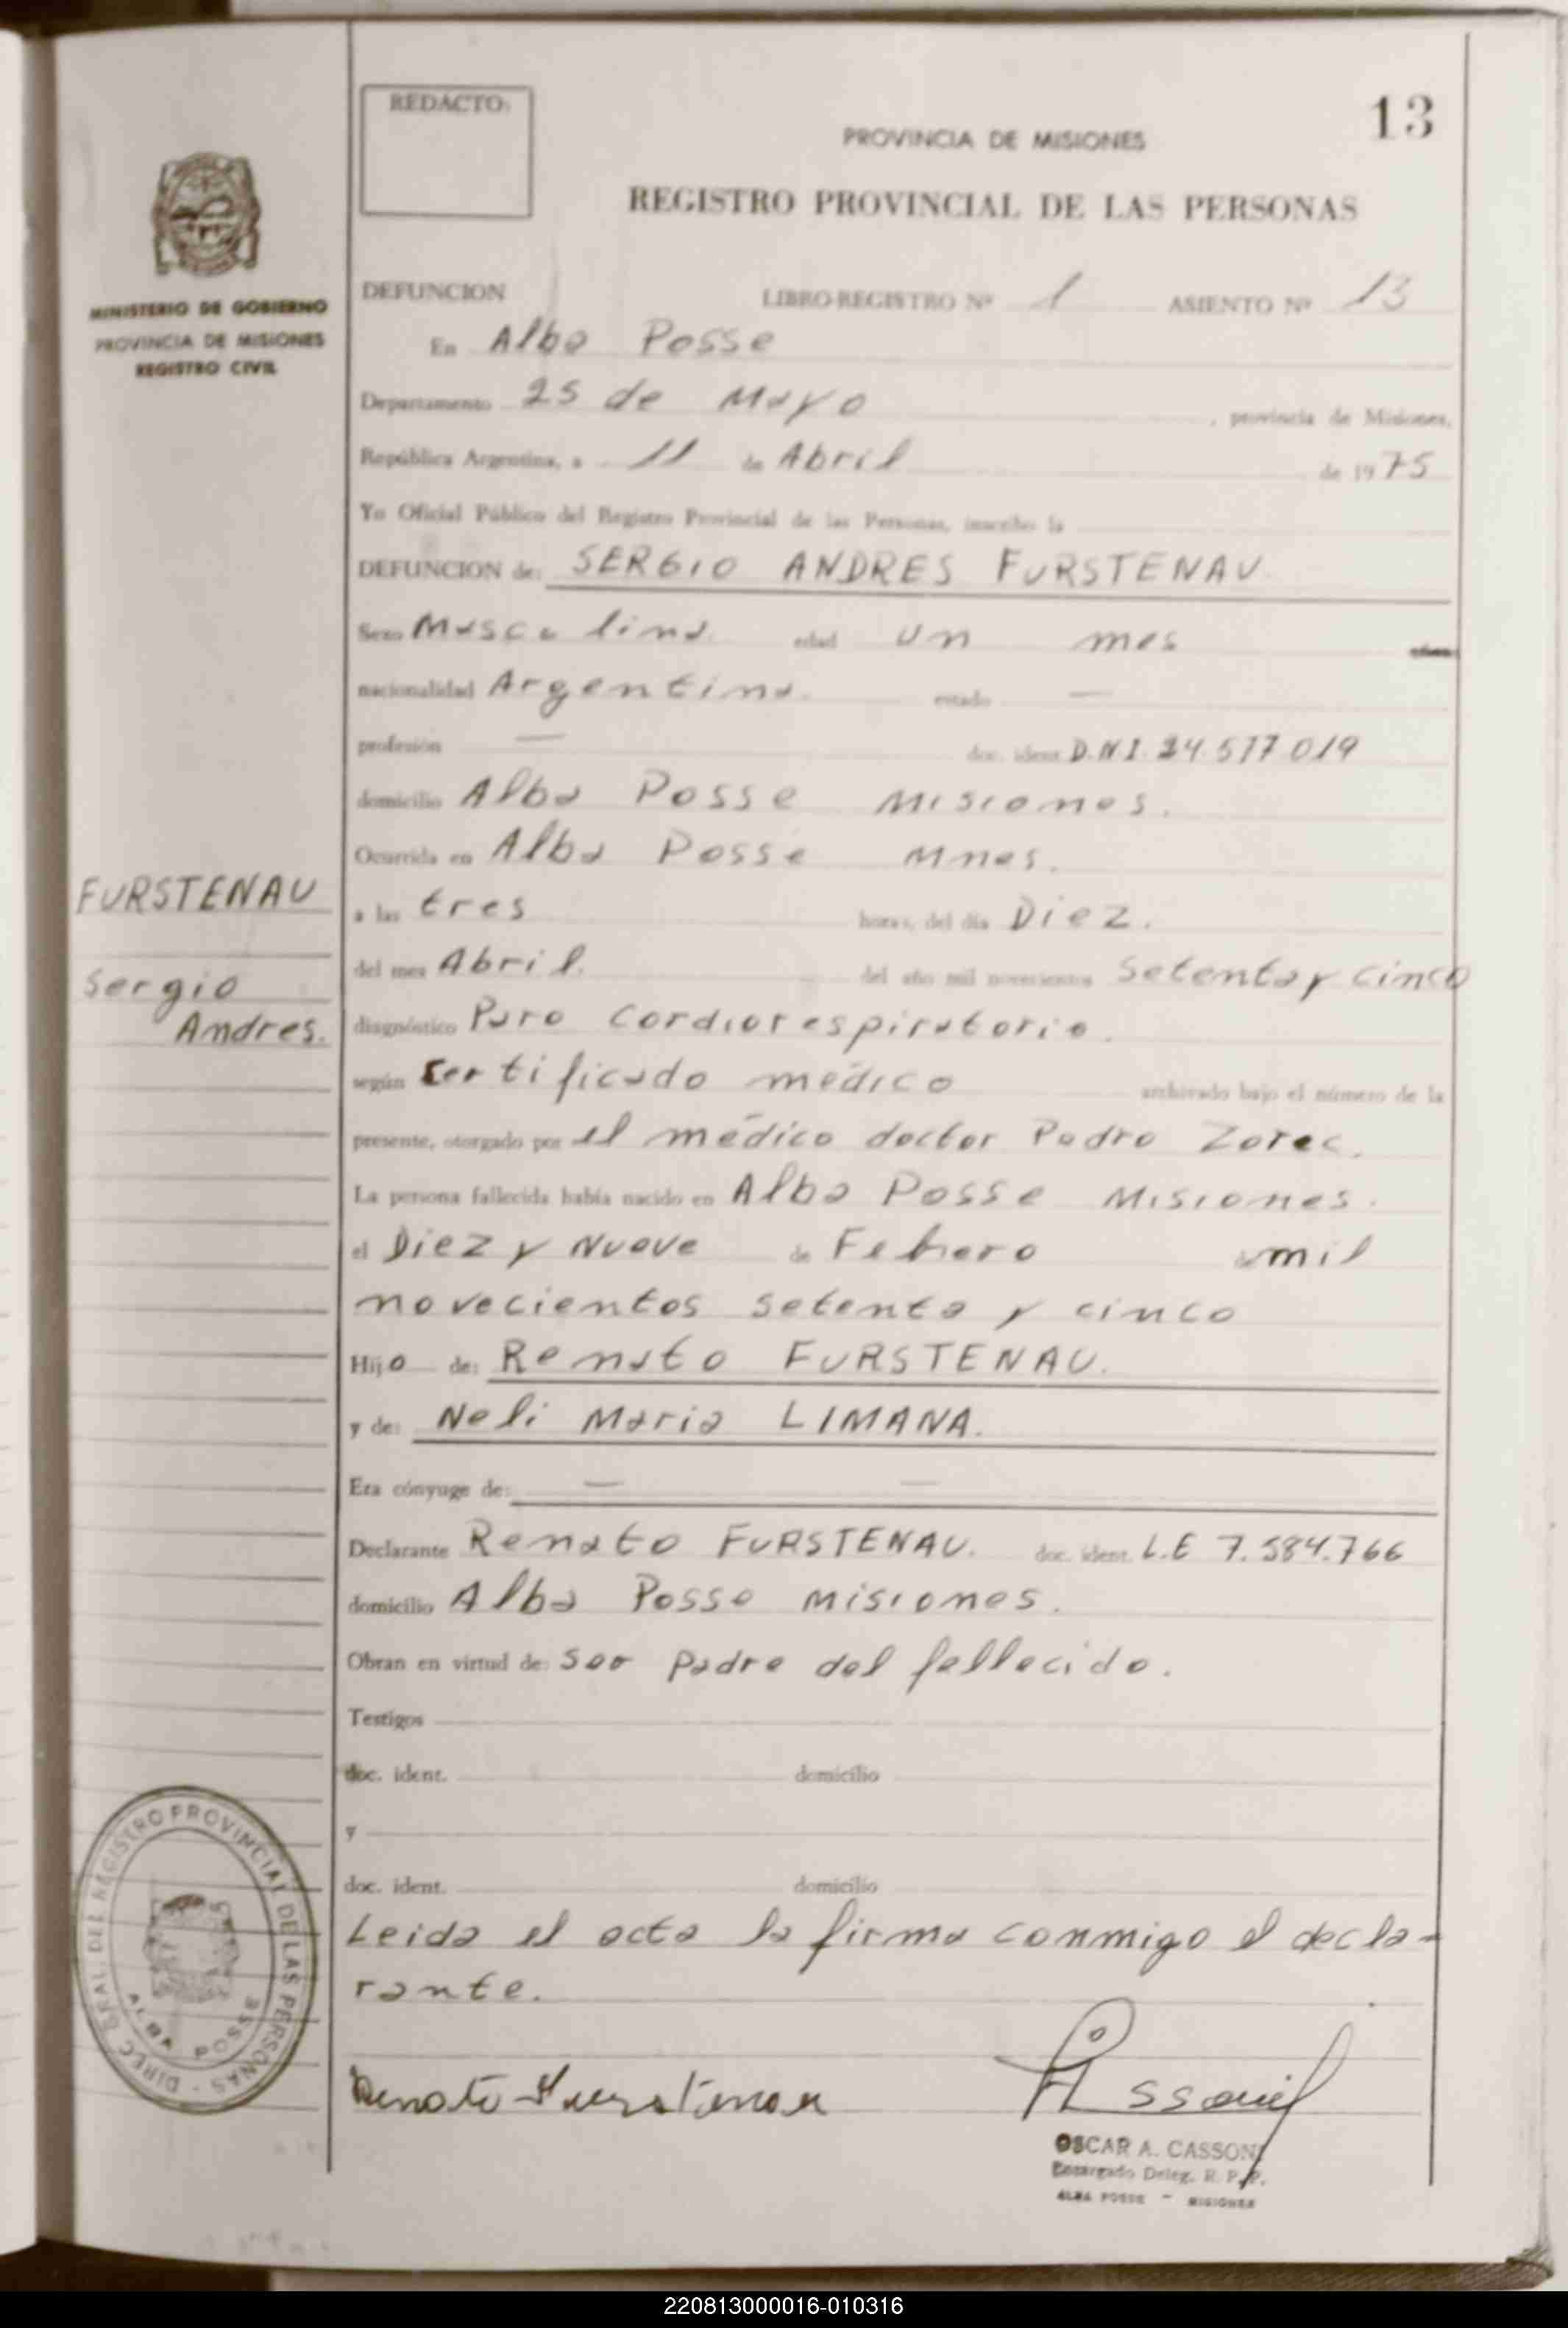 REDACTO:
13
PROVINCIA DE MISIONES
REGISTRO PROVINCIAL DE LAS PERSONAS
MINISTERIO DE GOBIERNO
PROVINCIA DE MISIONES
REGISTRO CIVIL
DEFUNCION LIBRO-REGISTRO Nº 1 ASIENTO Nº 13
En Alba Posse
Departamento 25 de Mayo, provincia de Misiones,
República Argentina, a 11 de Abril de 1975
Yo Oficial Público del Registro Provincial de las Personas, inscribo la
DEFUNCION de: SERGIO ANDRES FURSTENAU
Sexo Masculino. edad un mes años
nacionalidad Argentina. estado —
profesión — doc. ident. D.N.I. 24.577.019
domicilio Alba Posse Misiones.
Ocurrida en Alba Posse Mnes.
a las tres horas, del día Diez.
del mes Abril. del año mil novecientos Setenta y cinco
diagnóstico Paro Cardiorespiratorio.
según Certificado médico archivado bajo el número de la
presente, otorgado por el médico doctor Pedro Zorec.
La persona fallecida había nacido en Alba Posse Misiones.
el Diez y Nueve de Febrero de mil
novecientos setenta y cinco
Hijo de: Renato FURSTENAU.
y de: Neli Maria LIMANA.
Era cónyuge de: — —
Declarante Renato FURSTENAU. doc. ident. L.E 7.584.766
domicilio Alba Posse Misiones.
Obran en virtud de: ser padre del fallecido.
Testigos
doc. ident. domicilio
y
doc. ident. domicilio
Leida el acta la firma conmigo el decla-
rante.
Renato Furstenau
OSCAR A. CASSONI
Encargado Deleg. R. P. P.
ALBA POSSE - MISIONES
FURSTENAU
Sergio
Andres.
DIREC. GRAL. DEL REGISTRO PROVINCIAL DE LAS PERSONAS -
ALBA POSSE
220813000016-010316